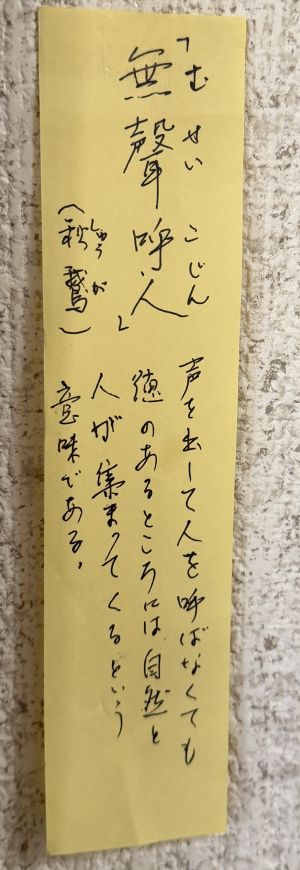 「むせいこじん
無聲呼人」
しゅうが
(秋鵞)
声を出して人を呼ばなくても
徳のあるところには自然と
人が集まってくるという
意味である。